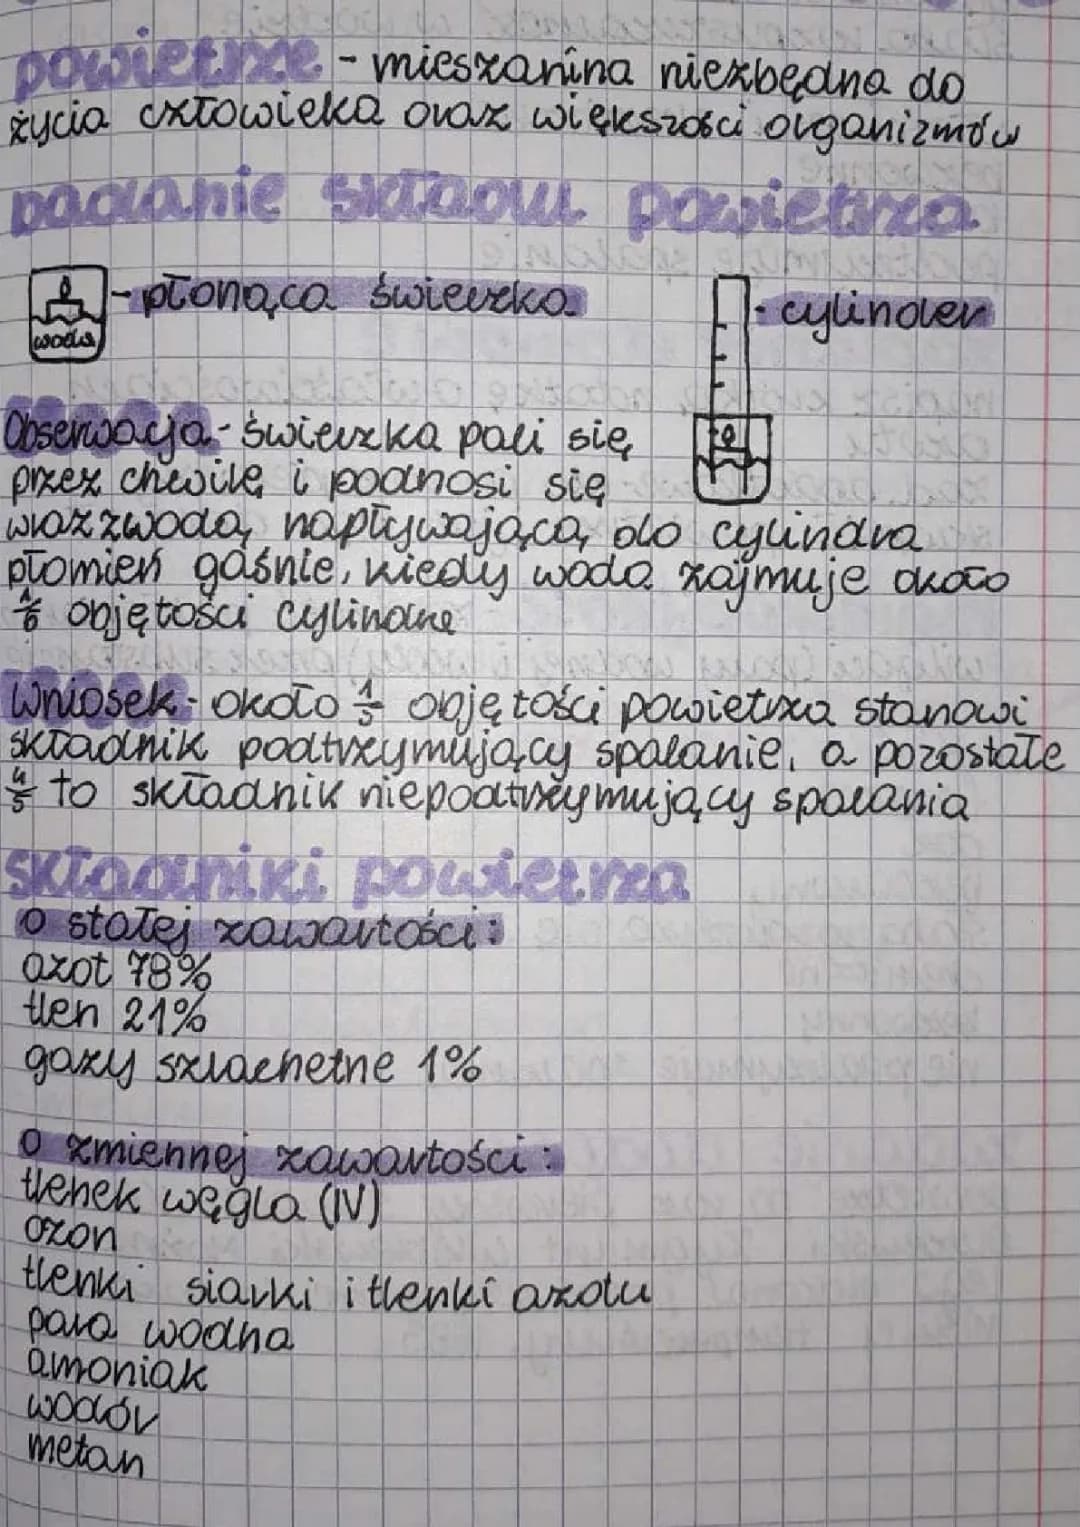 powietrze - mieszanina niezbędna do
życia człowieka oraz większości organizmów
badanie składu powietrza
- płonąca świeczka
- cylinder
woda
Obserwacja - świeczka pali się
przez chwilę i podnosi się
wraz z wodą napływającą do cylindra
płomień gaśnie, kiedy woda zajmuje około
objętości cylindra
Wniosek - około 1/5 objętości powietrza stanowi
składnik podtrzymujący spalanie, a pozostałe
4/5 to składnik niepodtrzymujący spalania
składniki powietrza
o stałej zawartości:
azot 78%
tlen 21%
gazy szlachetne 1%
o zmiennej zawartości:
tlenek węgla (IV)
ozon
tlenki siarki i tlenki azotu
para wodna
amoniak
wodór
metan